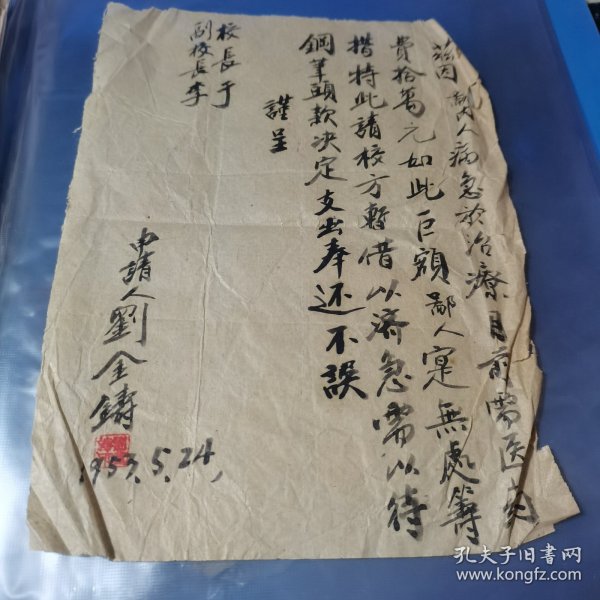 茲因鄙內人病急於治療目前需医药
費拾萬元如此巨額鄙人寔無處籌
措特此請校方暫借以濟急需以待
鋼筆頭款决定支出奉还不誤
謹呈
校長于
副校長李
申請人劉全鑄
1953.5.24,
孔夫子旧书网
www.kongfz.com